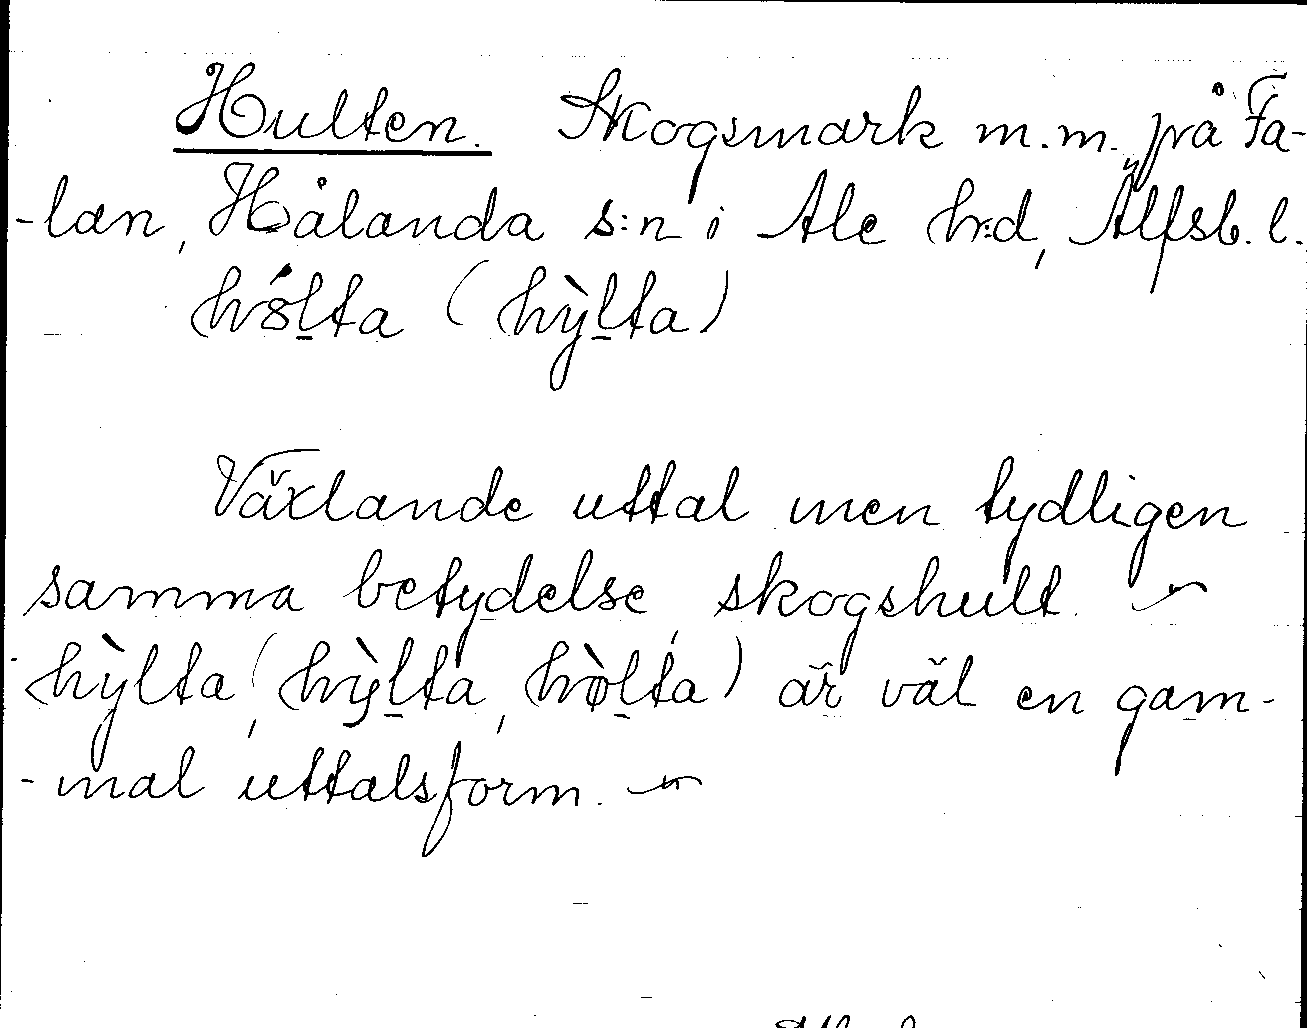 Hulten. Skogsmark m.m. på Fa-
-lan, Hålanda s:n i Ale h:d, Älfsb. l.
hólta (hỳlta)
Växlande uttal men tydligen
samma betydelse, skogshult. ~
hỳlta (hỳlta, hòlta) är väl en gam-
-mal uttalsform. ~